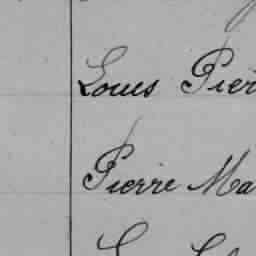 Louis Pier
Pierre Ma